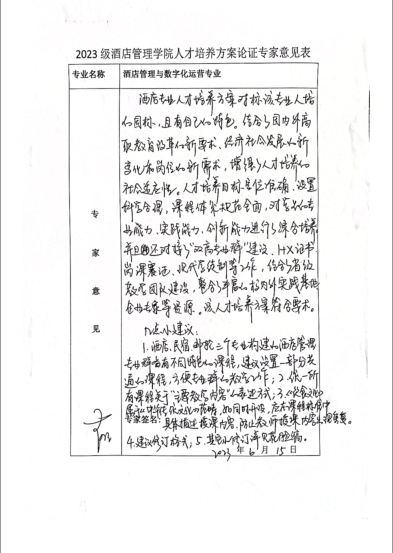 2023 级酒店管理学院人才培养方案论证专家意见表
专业名称
酒店管理与数字化运营专业
专家意见
酒店专业人才培养方案对标该专业人培
的目标，且有自己的特色。结合了国内外高
职教育改革的新要求、经济社会发展的新
变化和岗位的新需求，增强了人才培养的
社会适应性。人才培养目标定位准确、设置
科学合理，课程体系规范全面，对学生的专
业能力、实践能力、创新能力进行了综合培养
并且还对接了“双高专业群”建设、1+X证书
岗课赛证、现代学徒制等工作，结合了省级
教学团队建设，整合了专属的校内外实践基地
企业专家等资源。该人才培养方案符合要求。
几点小建议：
1.酒店、民宿、邮轮三个专业构建的酒店管理
专业群各有不同特色的课程，建议设置一部分共
通的课程，方便专业群的教学工作；2.统一所
有课程关于“主要教学内容”的表述方式；3.
专家签名：
具体描述授课内容，防止教师授课内容
4.建议修订格式；5.其它的修订
2023 年 6 月 15 日